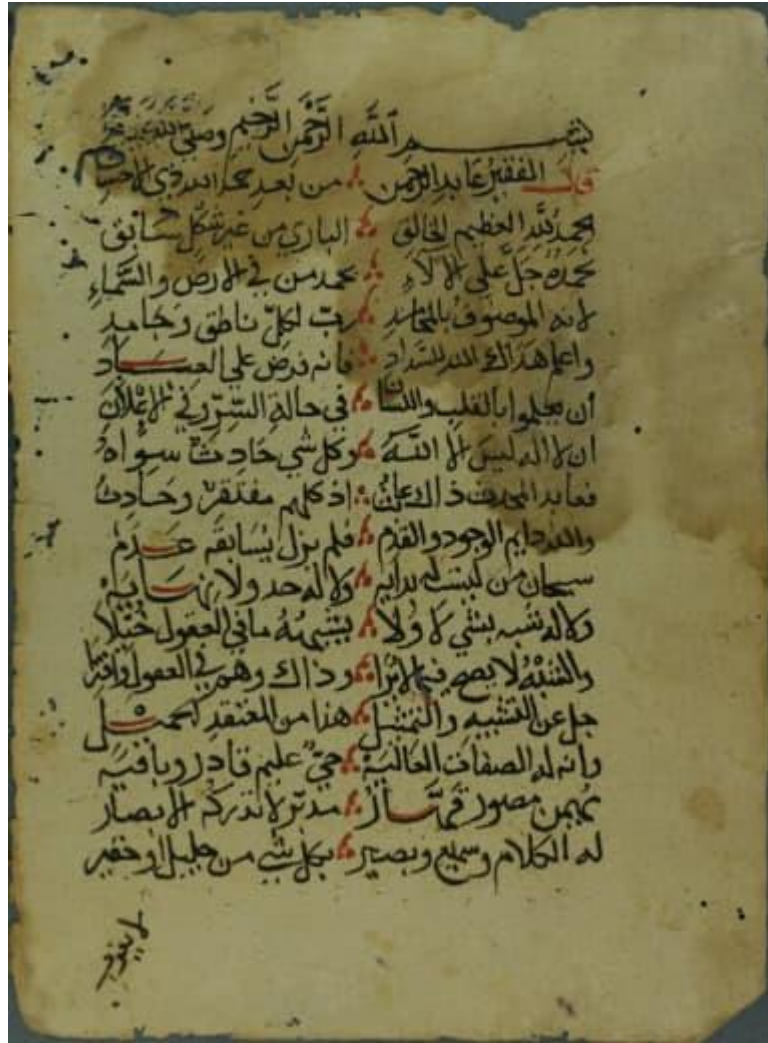 بسم الله الرحمن الرحيم وصلى الله
قال الفقير عابد الرحمن من بعد حمد الله ذي الاحسا
بحمد لله العظيم الخالق الباري من غير شكل سابق
نحمده جل على الالاء بحمد من في الارض والسماء
لانه الموصوف بالمحامد رب لكل ناطق وجامد
واعلم هداك الله للسداد فانه فرض على العباد
أن يعلموا بالقلب واللسان في حالة السر وفي الاعلان
ان لا اله ليس الا الله وكل شي حادث سواه
فعابد المحدث ذاك اذ كلهم مفتقر وحادث
والله دايم الوجود والقدم فلم يزل يسابقه عدم
سبحان من ليست له بدايه ولا له حد ولا نهايه
ولا له شبه بشي لا ولا يشبهه ما في العقول خيلا
والشبه لا يصح فيه وذاك وهم في العقول
جل عن التشبيه والتمثيل هذا من المعتقد الجميل
وانه له الصفات العاليه حي عليم قادر وباقيه
مهيمن مصور قهار مدبر لا تدركه الابصار
له الكلام وسميع وبصير بكل شي من جليل او حقير